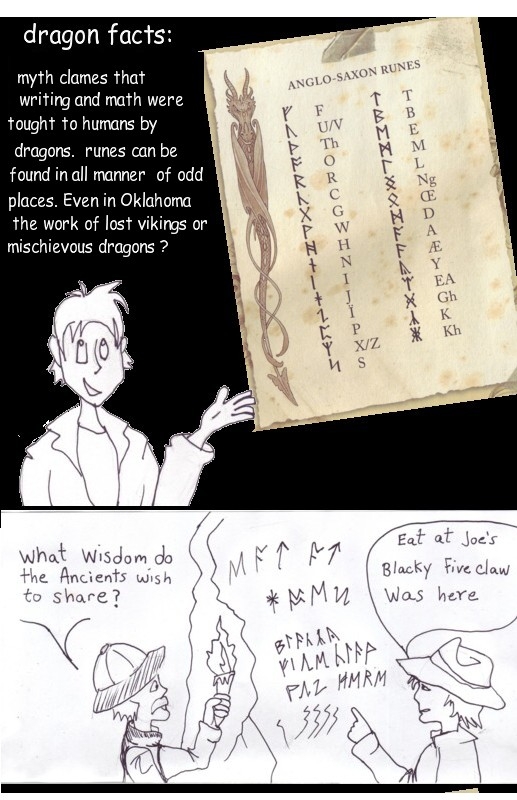 dragon facts:
myth clames that
writing and math were
tought to humans by
dragons. runes can be
found in all manner of odd
places. Even in Oklahoma
the work of lost vikings or
mischievous dragons ?
ANGLO-SAXON RUNES
ᚠ F
ᚢ U/V
ᚦ Th
ᚩ O
ᚱ R
ᚳ C
ᚷ G
ᚹ W
ᚻ H
ᚾ N
ᛁ I
J
ᛇ Ï
ᛈ P
ᛉ X/Z
ᛋ S
ᛏ T
ᛒ B
ᛖ E
ᛗ M
ᛚ L
ᛝ Ng
ᛟ Œ
ᛞ D
ᚪ A
ᚫ Æ
ᚣ Y
ᛠ EA
ᚸ Gh
ᛣ K
ᛤ Kh
What Wisdom do
the Ancients wish
to share?
ᛖᚪᛏ ᚪᛏ
Eat at Joe's
Blacky Five claw
Was here